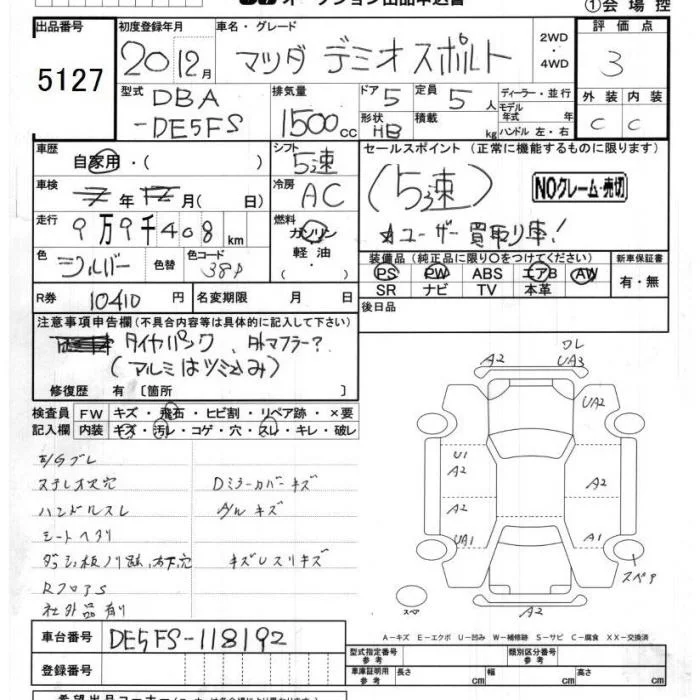 ①会場控
出品番号
5127
初度登録年月
20 12月
車名・グレード
マツダ デミオスポルト
2WD
・
4WD
評価点
3
型式
DBA
-DE5FS
排気量
1500cc
ドア 5
定員 5人
ディーラー・並行
モデル年式 年
形状 HB
積載 kg
ハンドル 左・右
外装 内装
C C
車歴
自家用・( )
シフト
5速
セールスポイント (正常に機能するものに限ります)
(5速)
NOクレーム・売切
ユーザー買取り車!
車検
年 月( 日)
冷房
AC
走行
9万9千408km
燃料
ガソリン
軽油
・( )
色
シルバー
色替
色コード
38P
装備品 (純正品に限り○をつけてください)
PS PW ABS エアB AW
SR ナビ TV 本革
新車保証書
有・無
R券 10410円
名変期限 月 日
後日品
注意事項申告欄 (不具合内容等は具体的に記入して下さい)
タイヤパンク、外マフラー?
(アルミはツミこみ)
修復歴 有〔箇所 〕
検査員 FW キズ・飛石・ヒビ割・リペア跡・×要
記入欄 内装 キズ・汚レ・コゲ・穴・スレ・キレ・破レ
E/Gブレ
ステレオ欠穴
Dミラーカバーキズ
ハンドルスレ
A/Wキズ
シートヘタリ
キズUスリキズ
社外品有り
A2
ワレ
UA3
UA2
U1
A2
A2
A2
UA1
A1
スペア
スペア
A2
A-キズ E-エクボ U-凹み W-補修跡 S-サビ C-腐食 XX-交換済
車台番号 DE5FS-118192
登録番号
型式指定番号
参考
類別区分番号
参考
車庫証明用
参考
長さ cm 幅 cm 高さ cm